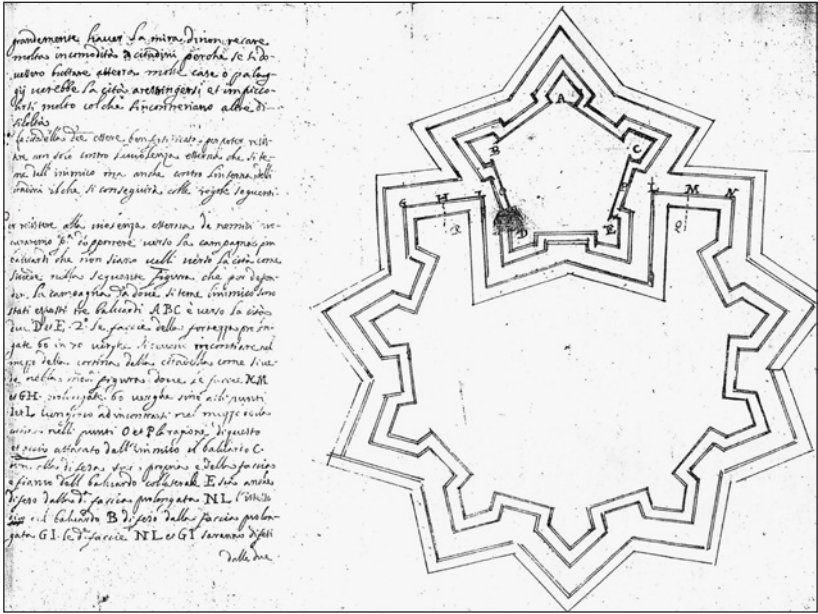 grandemente haver la mira di non recare
molta incomodità a cittadini perche se si do-
vessero buttare atterra molte case o palaz-
zij verebbe la cità a restringersi et
molto col che s'incontreriano altre di-
ficoltà
La cittadella deve essere ben fortificata per poter resis-
tere non solo contro la violenza esterna che si te-
me dell'inimico ma anche contro l'interna delli
il che si conseguirà colle regole seguenti
Per resistere alla violenza esterna de nemici
di opponere verso la campagna più
baluardi che non siano nelli verso la cità come
si vede nella seguente figura che per difen-
der la campagna da dove si teme l'inimico sono
stati esposti tre baluardi A B C è verso la cità
due D et E. 2° Le faccie della fortezza prolon-
gate 60 in 70 verghe si devono incontrare nel
mezzo della cortina della cittadella come si ve-
de nella figura dove le faccie N M
et G H prolungate 60 verghe sino alli punti
I et L vengono ad incontrarsi nel mezzo della
nelli punti O et P la ragione di questo
attacato dall'inimico il baluardo C
oltre alla difesa sua propria e della faccia
e fianco dell baluardo collaterale E sia anche
difeso dalla d.ª faccia prolongata N L l'istesso
sia del baluardo B difeso dalla faccia prolon-
gata G I. Le d.ᵉ faccie N L et G I saranno difesi
dalle due
A
B
C
G H I
L M N
O
P
Q
D
E